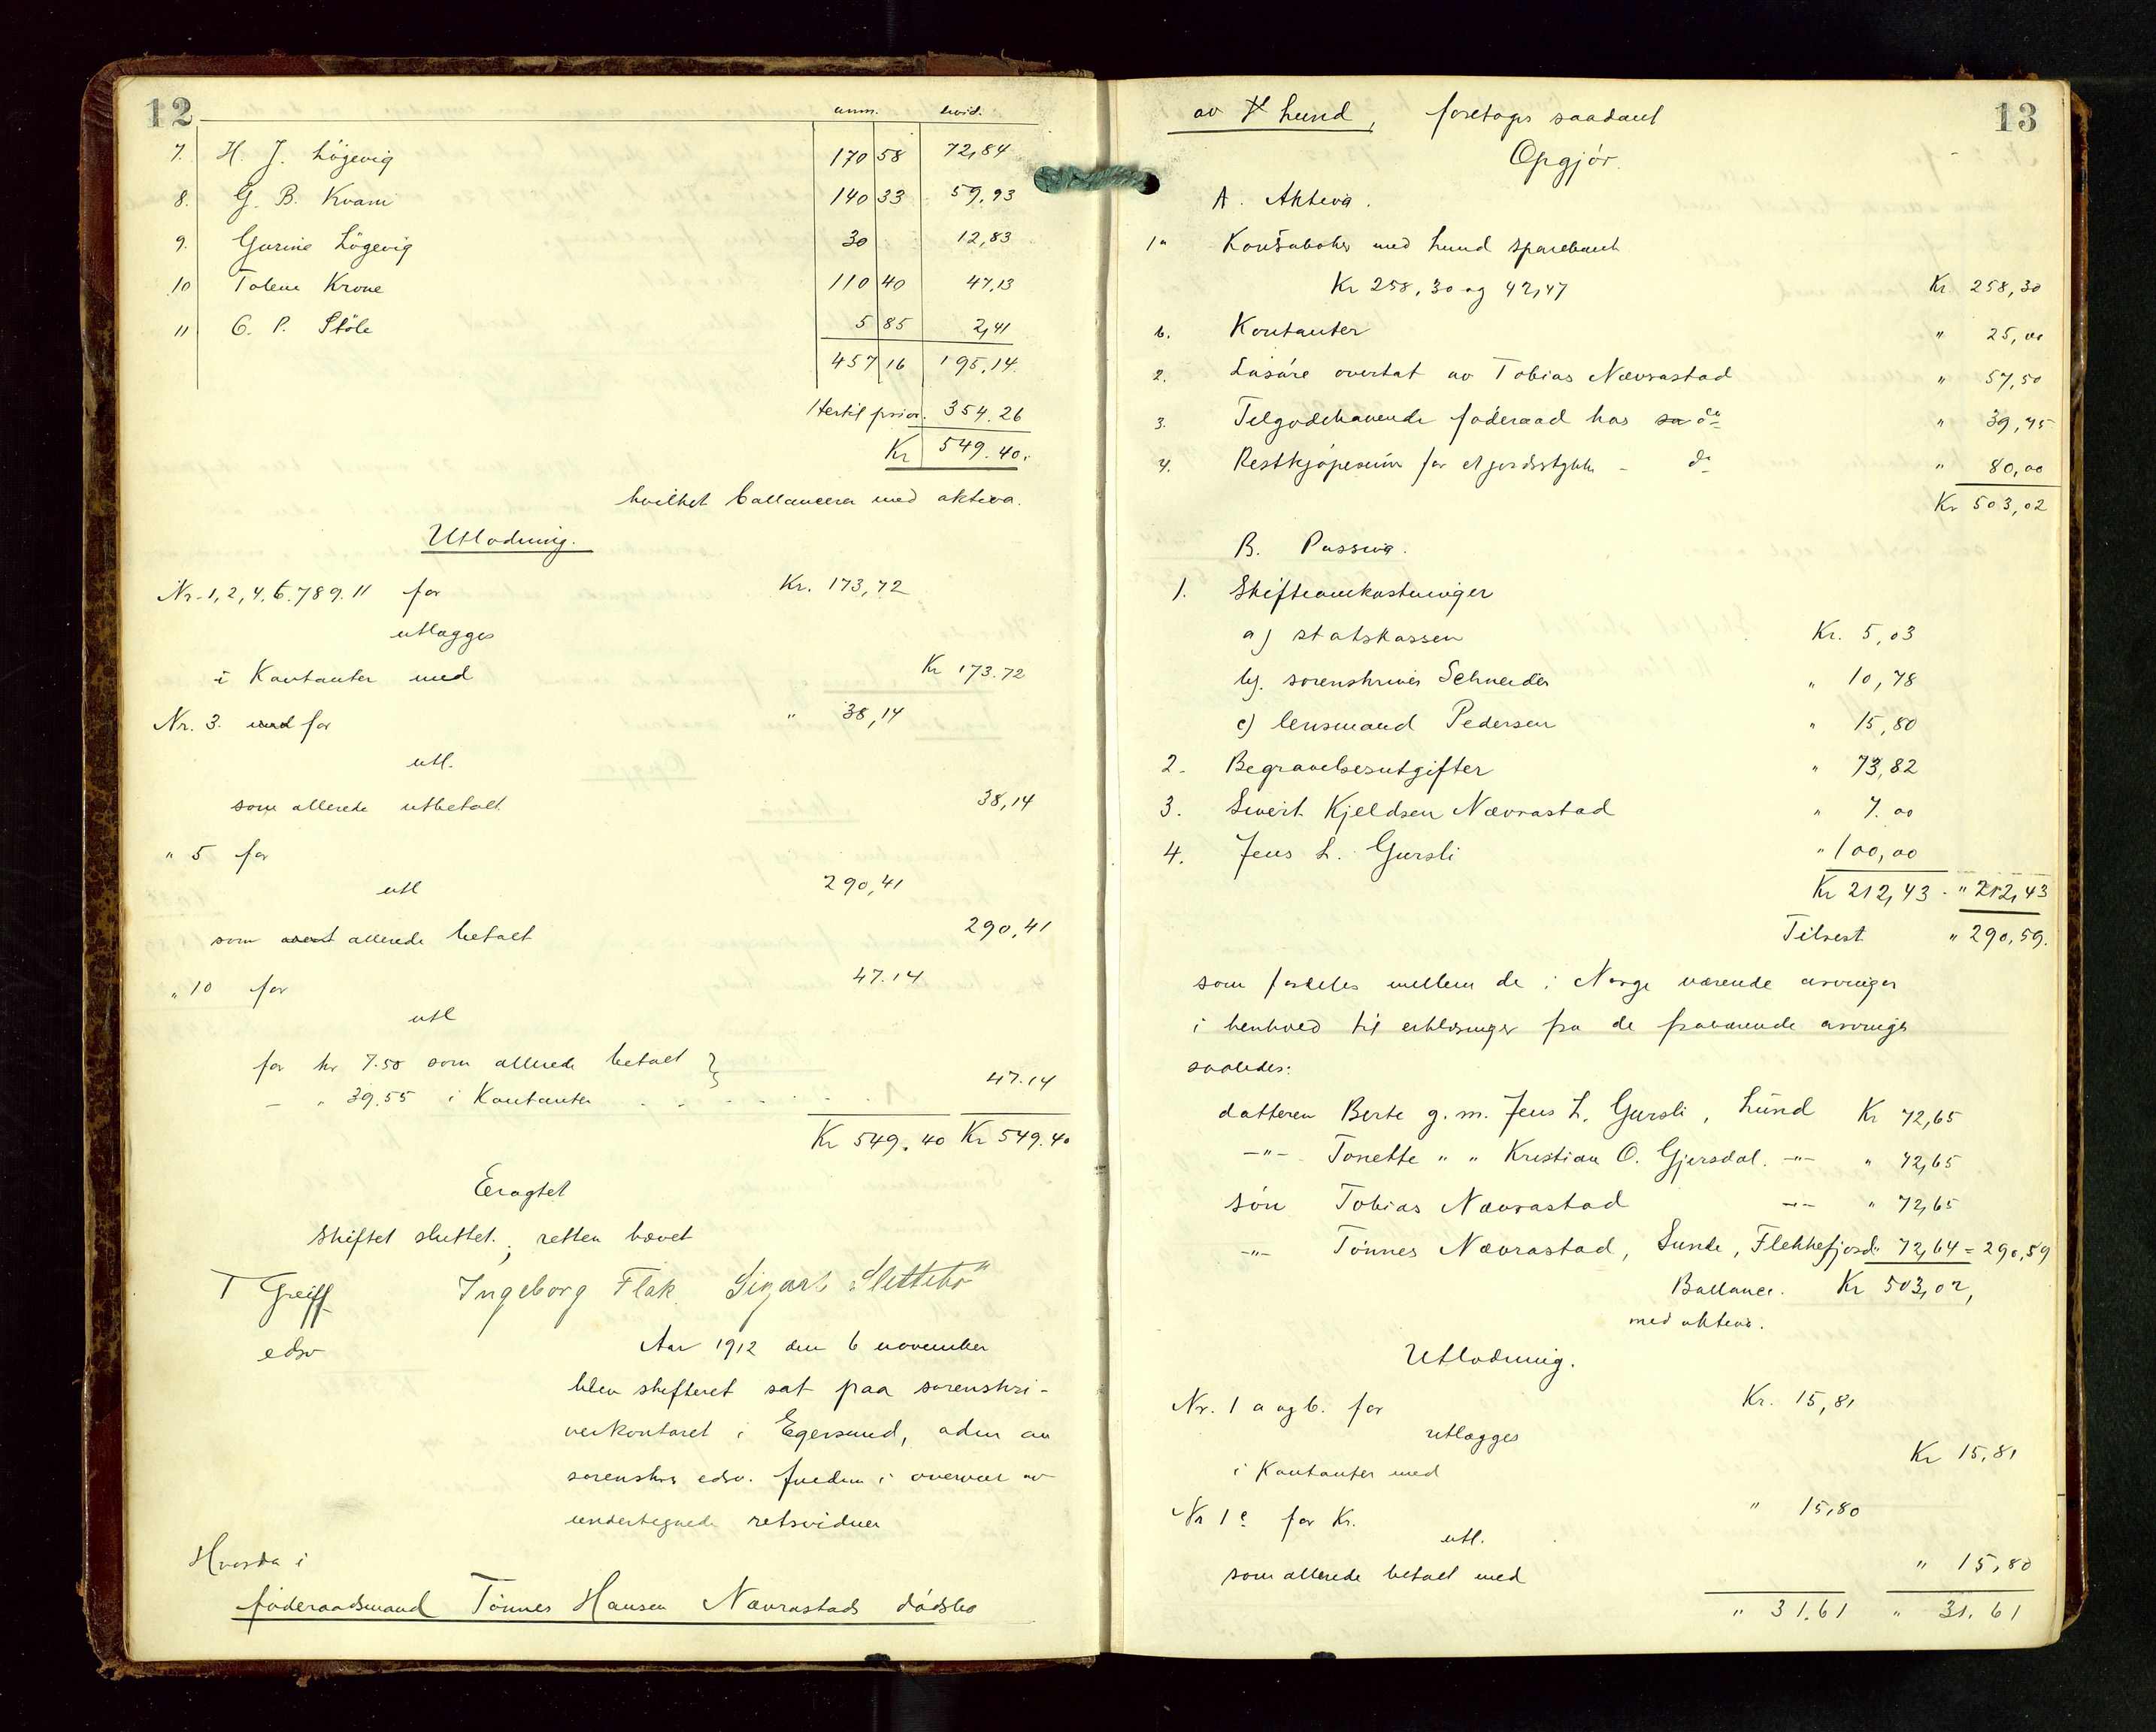 12
anm. livid.
7. H. J. Løgevig 170 58 72,84
8. G. B. Kvam 140 33 59,93
9. Gurine Løgevig 30 12,83
10 Tolene Krone 110 40 47,13
11 C. P. Støle 5 85 2,41
457 16 195,14.
Hertil prior. 354.26
Kr 549.40.
hvilket ballancerer med aktiva.
Utlodning.
Nr. 1, 2, 4, 6. 7 8 9. 11 for Kr. 173,72
utlægges
i Kontanter med Kr 173.72
Nr. 3. med for " 38,14
utl.
som allerede utbetalt 38,14
" 5 for
utl 290,41
som allerede betalt 290,41
" 10 for 47.14
utl
for kr 7.50 som allerede betalt
- " 39.55 i Kontanter 47.14
Kr 549.40 Kr 549.40
Eragtet
Skiftet sluttet; retten hævet
T Greiff Ingeborg Flak Sigart Slettebø
edsv
Aar 1912 den 6 november
blev skifteret sat paa sorenskri-
verkontoret i Egersund, adm av
sorenskr edsv. fuldm i overvær av
undertegnede retsvidner
Hvorda i
føderaadsmand Tønnes Hansen Nævrastads dødsbo
13
av Lund, foretoges saadant
Opgjør.
A. Aktiva.
1a Kontrabøker med Lund Sparebank
Kr 258,30 og 42,47 Kr 258,30
b. Kontanter " 25,00
2. Løsøre overtat av Tobias Nævrastad " 57,50
3. Tilgodehavende føderaad hos do " 39,75
4. Restkjøpesum for et jordstykke - do " 80,00
Kr 503,02
B. Passiva.
1. Skifteomkostninger
a) statskassen Kr. 5,03
b). sorenskriver Schneider " 10,78
c) lensmand Pedersen " 15,80
2. Begravelsesutgifter " 73,82
3. Sivert Kjeldsen Nævrastad " 7.00
4. Jens L. Gursli " 100,00
Kr 212,43 - " 212,43
Tilrest " 290,59.
som fordeles mellem de i Norge værende arvinger
i henhold til erklæringer fra de fraværende arvinger
saaledes:
datteren Berte g. m. Jens L. Gursli, Lund Kr 72,65
-"- Tonette " " Kristian O. Gjersdal. -"- " 72,65
søn Tobias Nævrastad -"- " 72,65
-"- Tønnes Nævrastad, Sunde, Flekkefjord " 72,64 = 290,59
Ballance. Kr 503,02,
med aktiva.
Utlodning.
Nr. 1 a og b. for Kr. 15,81
utlægges
i Kontanter med Kr 15,81
Nr 1 c for Kr. " 15,80
utl.
som allerede betalt med " 15,80
" 31.61 " 31.61